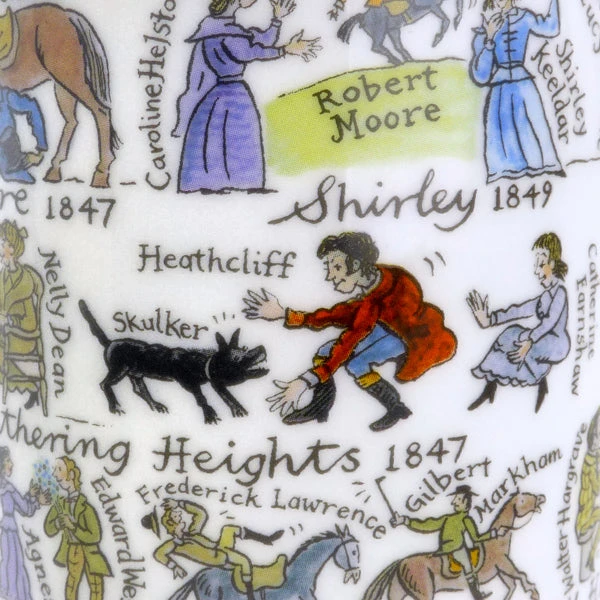 Caroline Helsto
Robert
Moore
Shirley
Keeldar
ucy
re 1847
Shirley 1849
Heathcliff
Nelly Dean
Skulker
Catherine
Earnshaw
thering Heights 1847
Frederick Lawrence
Gilbert Markham
Edward We
Agnes
Walter Hargrave